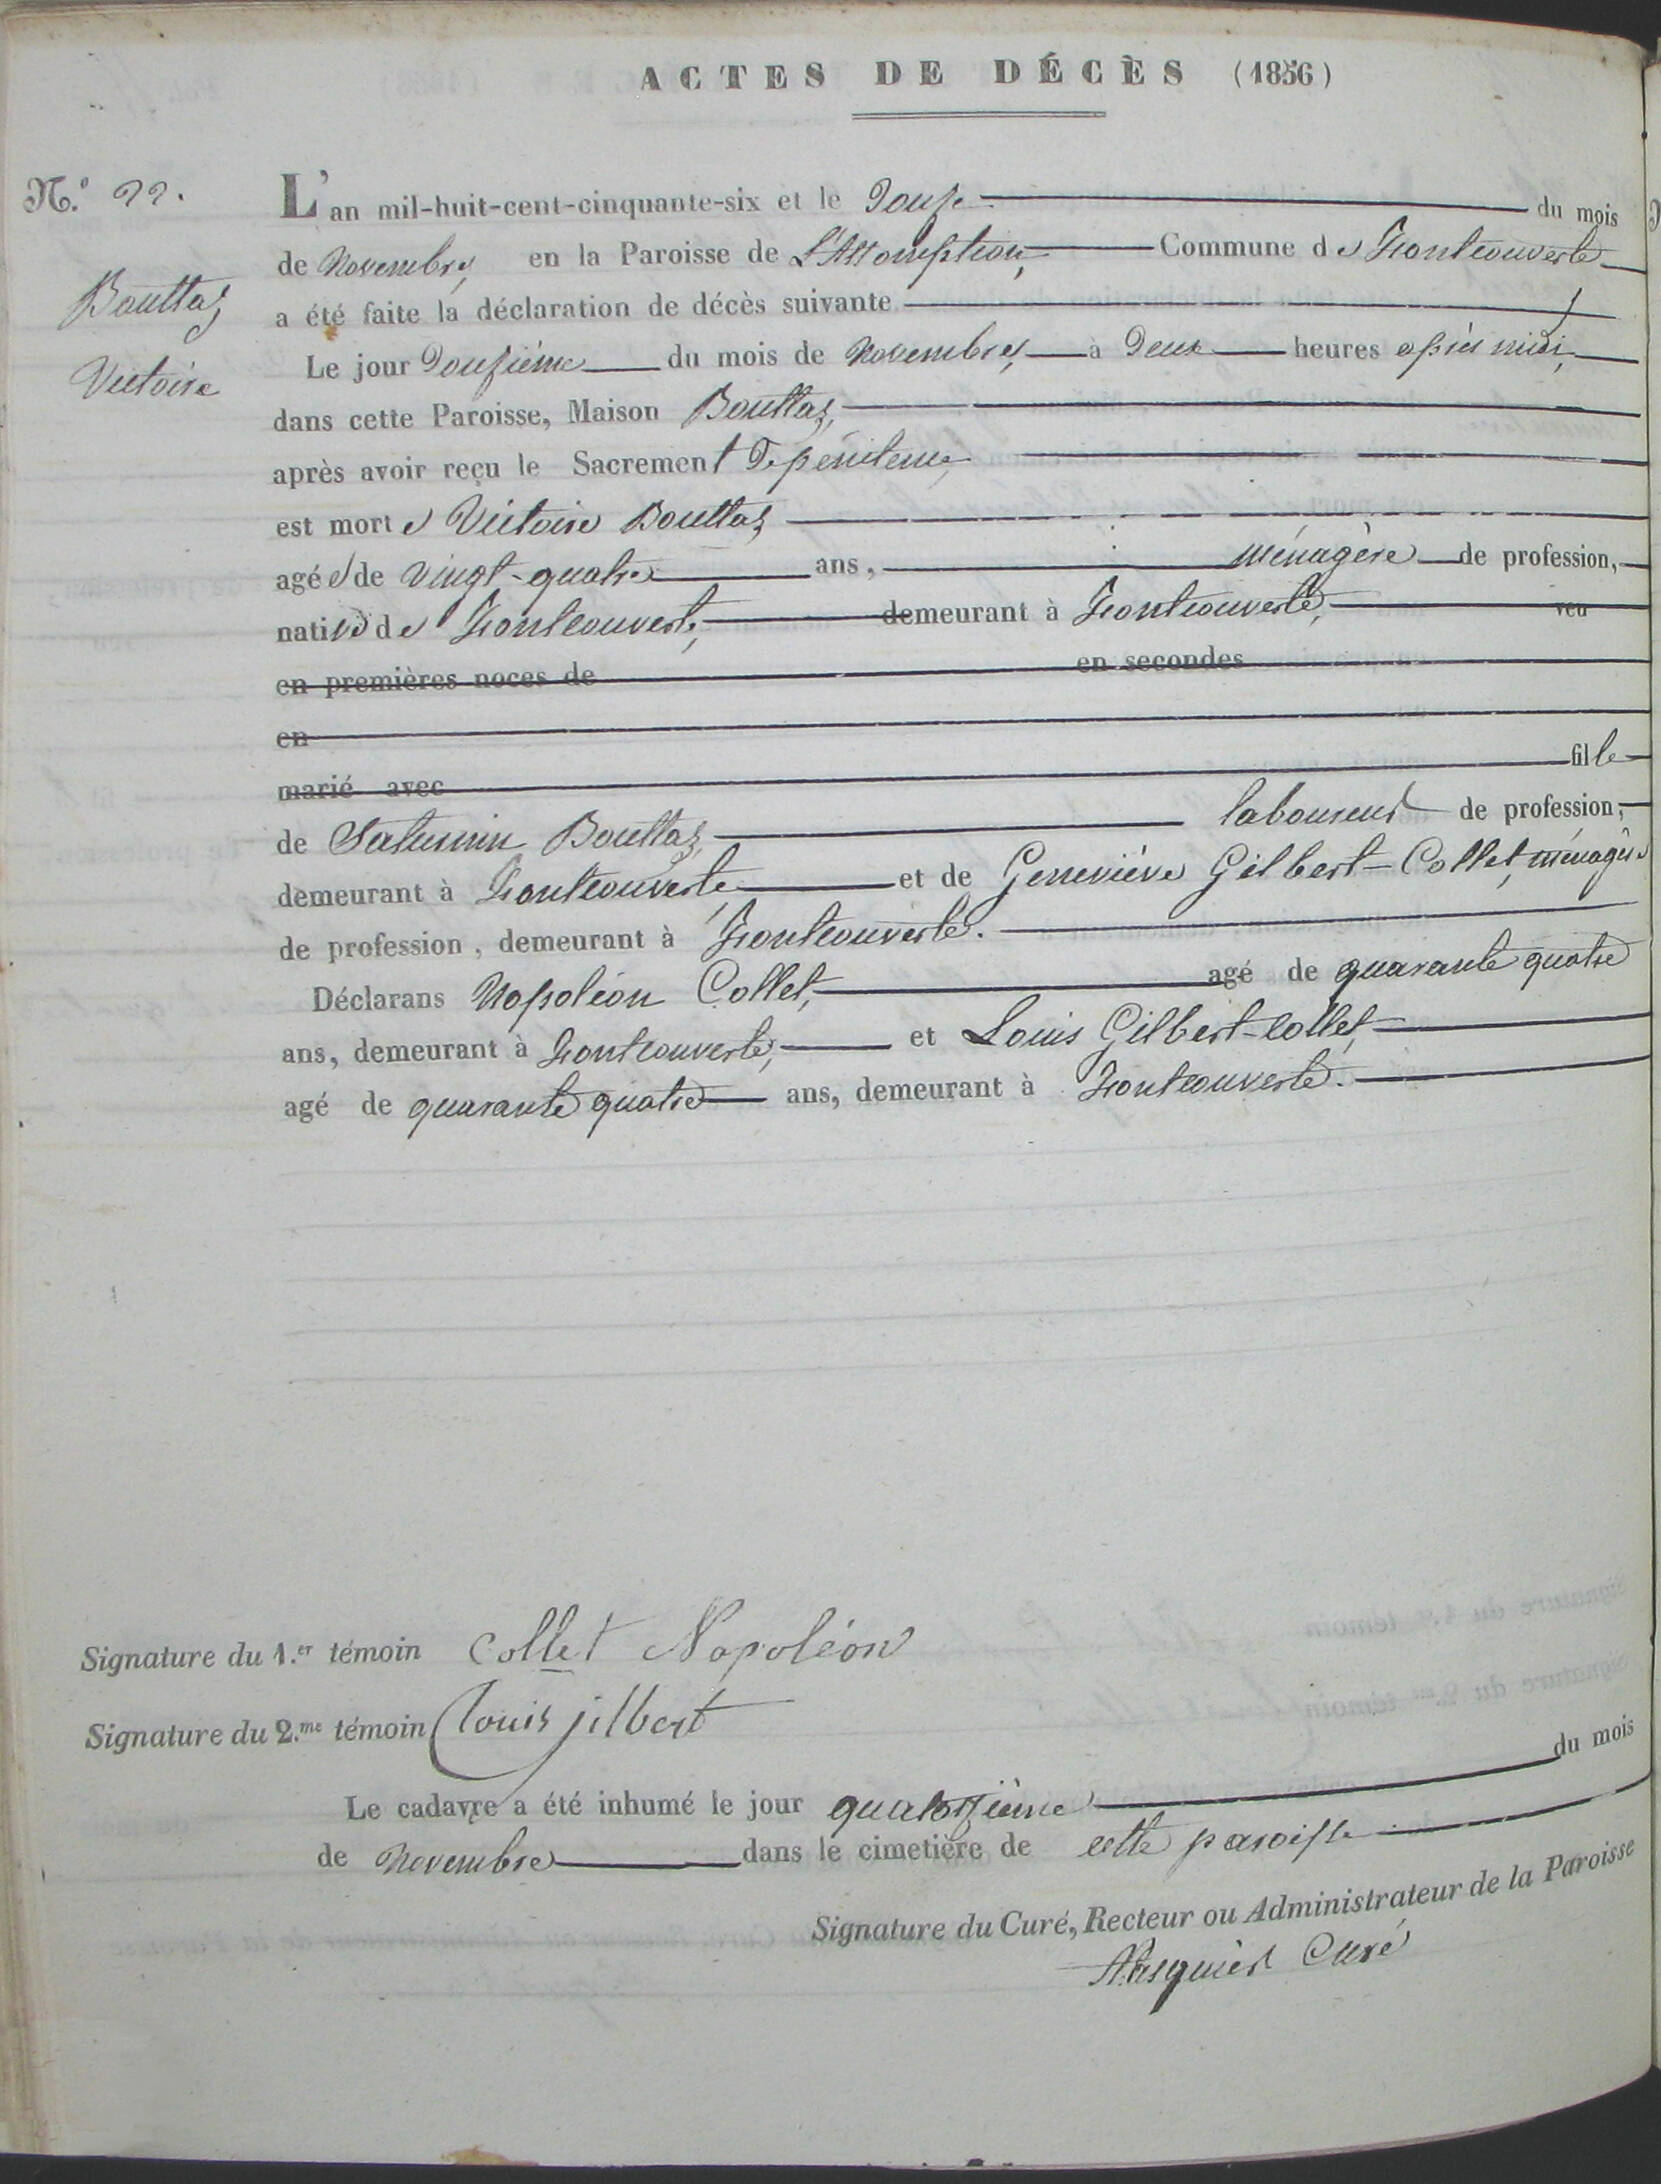 ACTES DE DÉCÈS (1856)
N.º 22.
Bouttaz
Victoire
L'an mil-huit-cent-cinquante-six et le Douze du mois
de Novembre, en la Paroisse de L'Assomption, Commune de Fontcouverte
a été faite la déclaration de décès suivante
Le jour Douzième du mois de Novembre, à Deux heures après midi,
dans cette Paroisse, Maison Bouttaz,
après avoir reçu le Sacrement De pénitence,
est morte Victoire Bouttaz
agée de vingt-quatre ans, ménagère de profession,
native de Fontcouverte, demeurant à Fontcouverte, veu
en premières noces de en secondes
en
marié avec fille
de Saturnin Bouttaz, laboureur de profession,
demeurant à Fontcouverte, et de Geneviève Gilbert-Collet, ménagère
de profession, demeurant à Fontcouverte.
Déclarans Napoléon Collet, agé de quarante quatre
ans, demeurant à Fontcouverte, et Louis Gilbert-Collet,
agé de quarante quatre ans, demeurant à Fontcouverte.
Signature du 1.er témoin Collet Napoléon
Signature du 2.me témoin Louis jilbert
Le cadavre a été inhumé le jour quatorzième du mois
de Novembre dans le cimetière de cette paroisse
Signature du Curé, Recteur ou Administrateur de la Paroisse
Curé